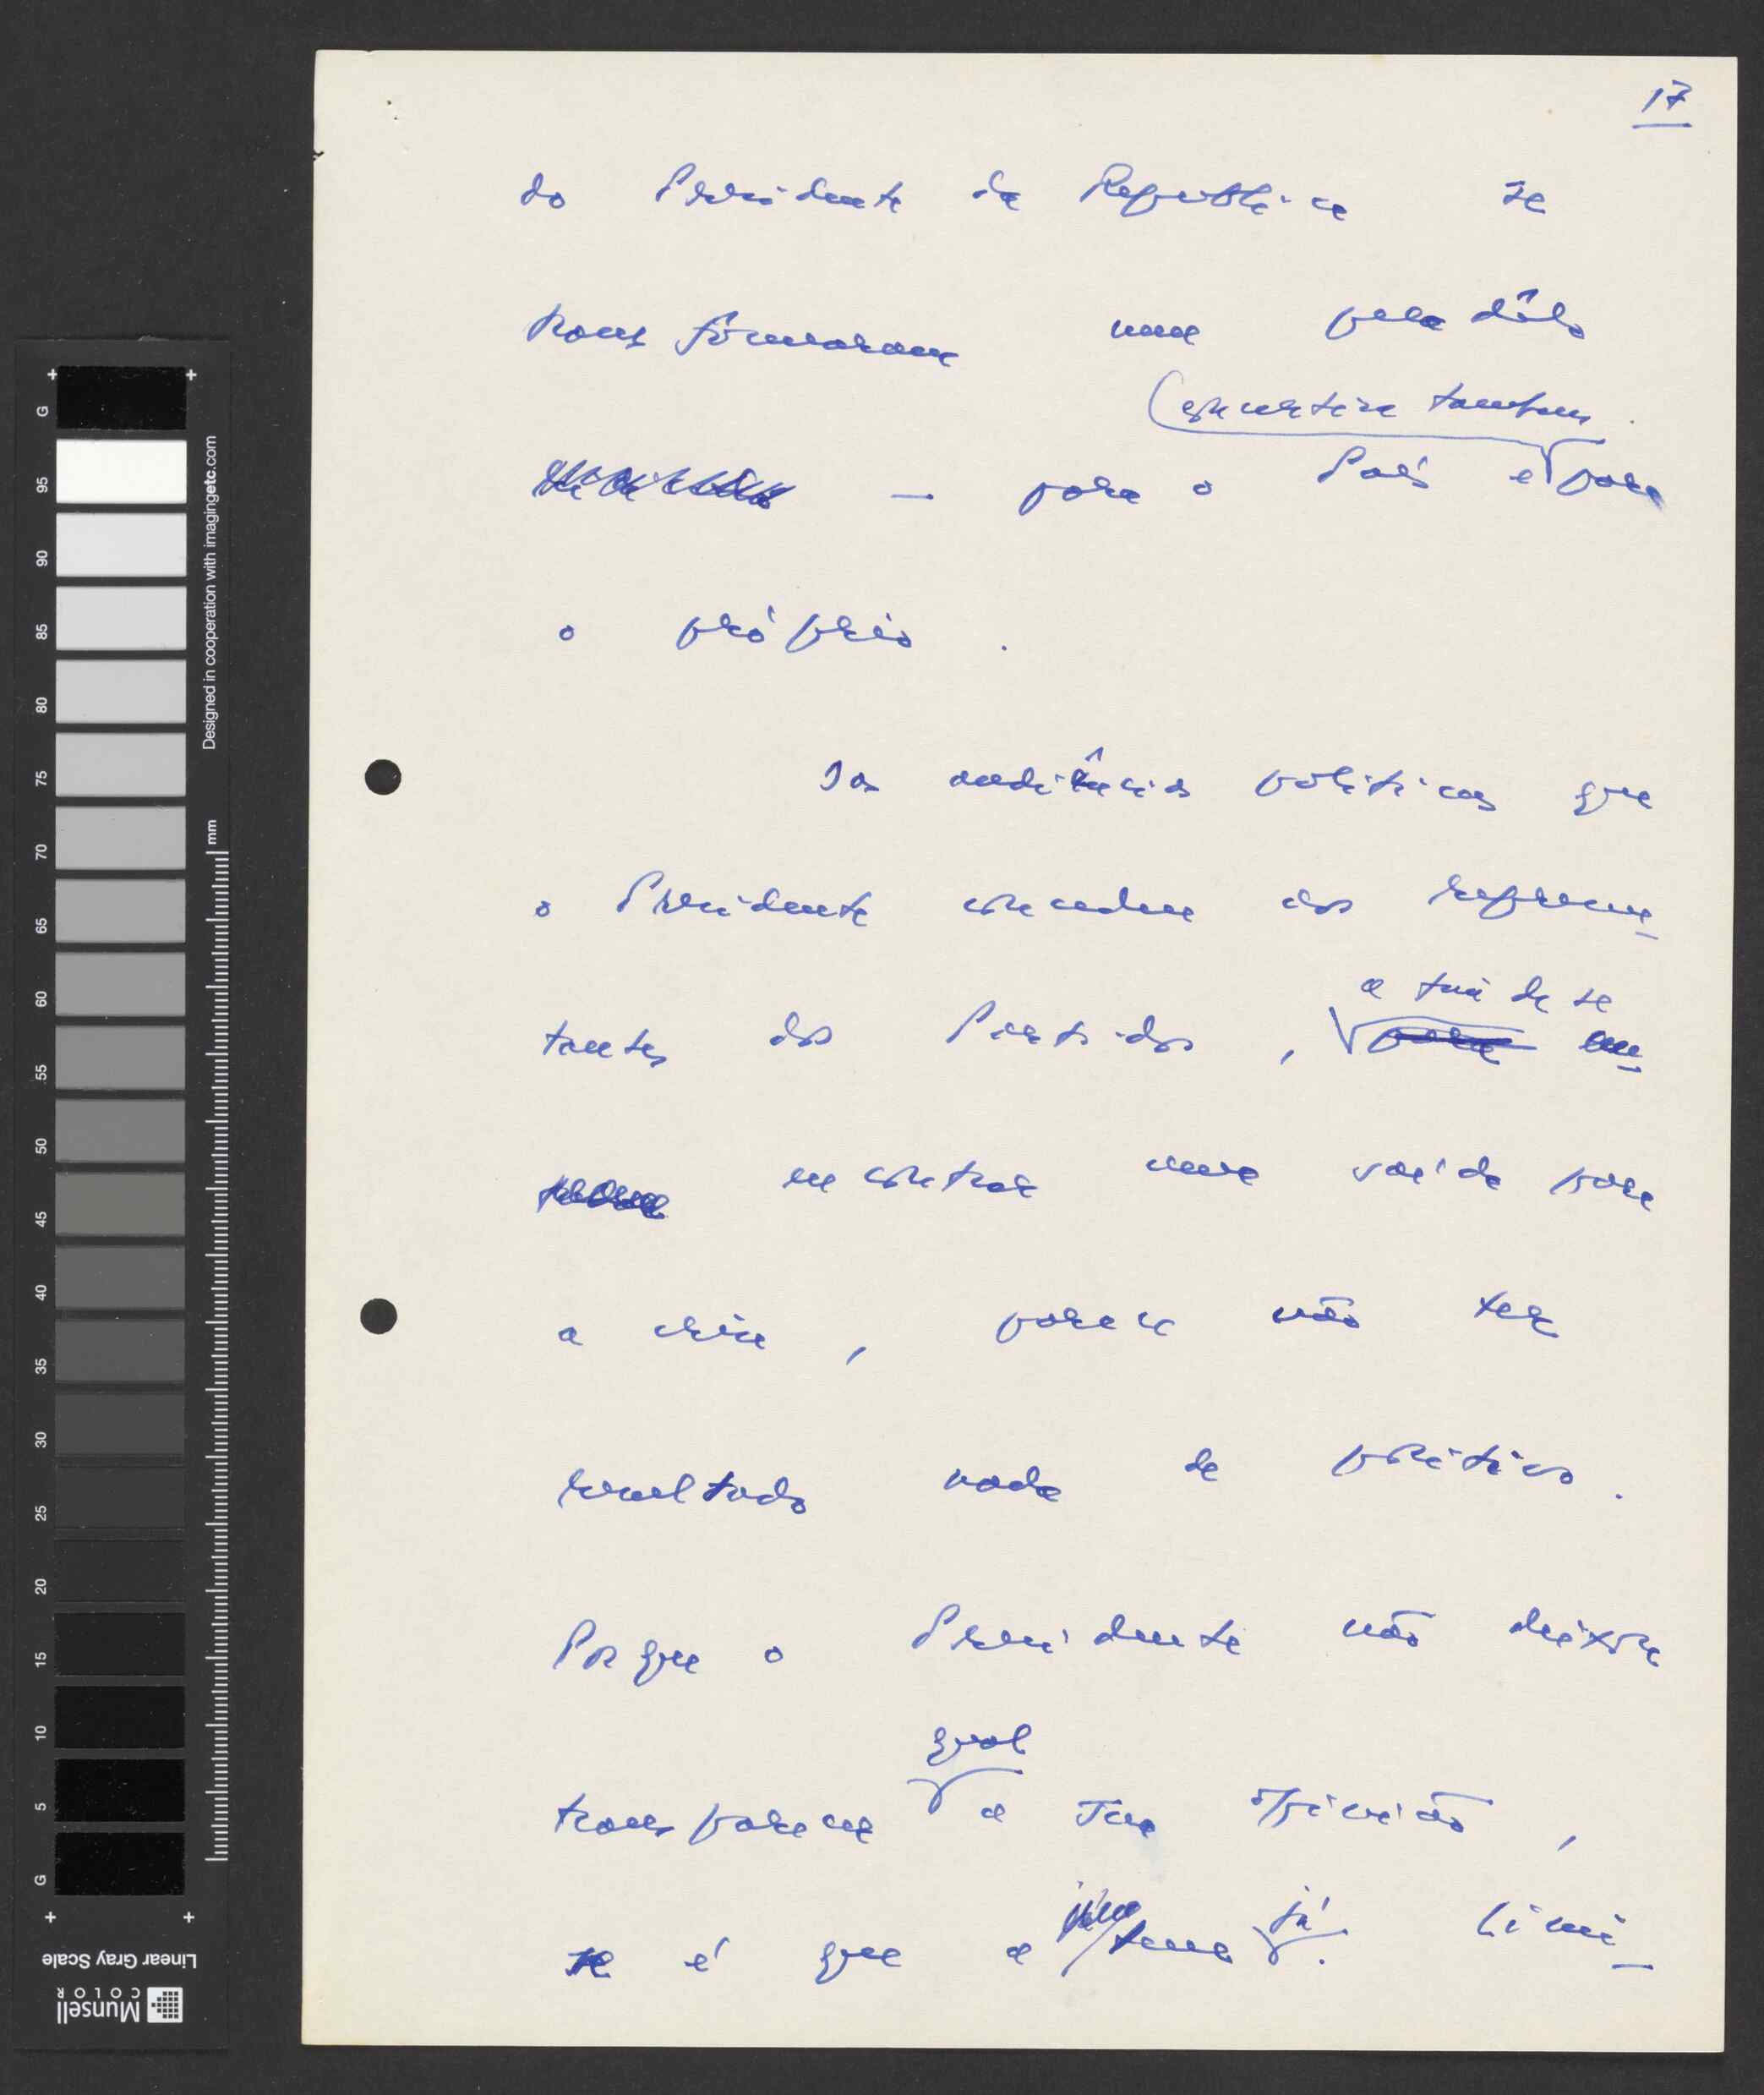 17
do Presidente da República se
transformaram num pesadêlo
(concretiza também
— para o País e para
o próprio .
Das audiências políticas que
o Presidente concedeu aos represen-
a fim de se
tantes dos Partidos , para
encontrar uma saída para
a crise , parece não ter
resultado nada de positivo .
Porque o Presidente não deixou
qual
transparecer a sua opinião ,
já
se é que a tem . Limi-
Designed in cooperation with imagingetc.com
mm
G 95 90 85 80 75 70 65 60 55 50 45 40 35 30 25 20 15 10 5 G
Linear Gray Scale
Munsell
COLOR